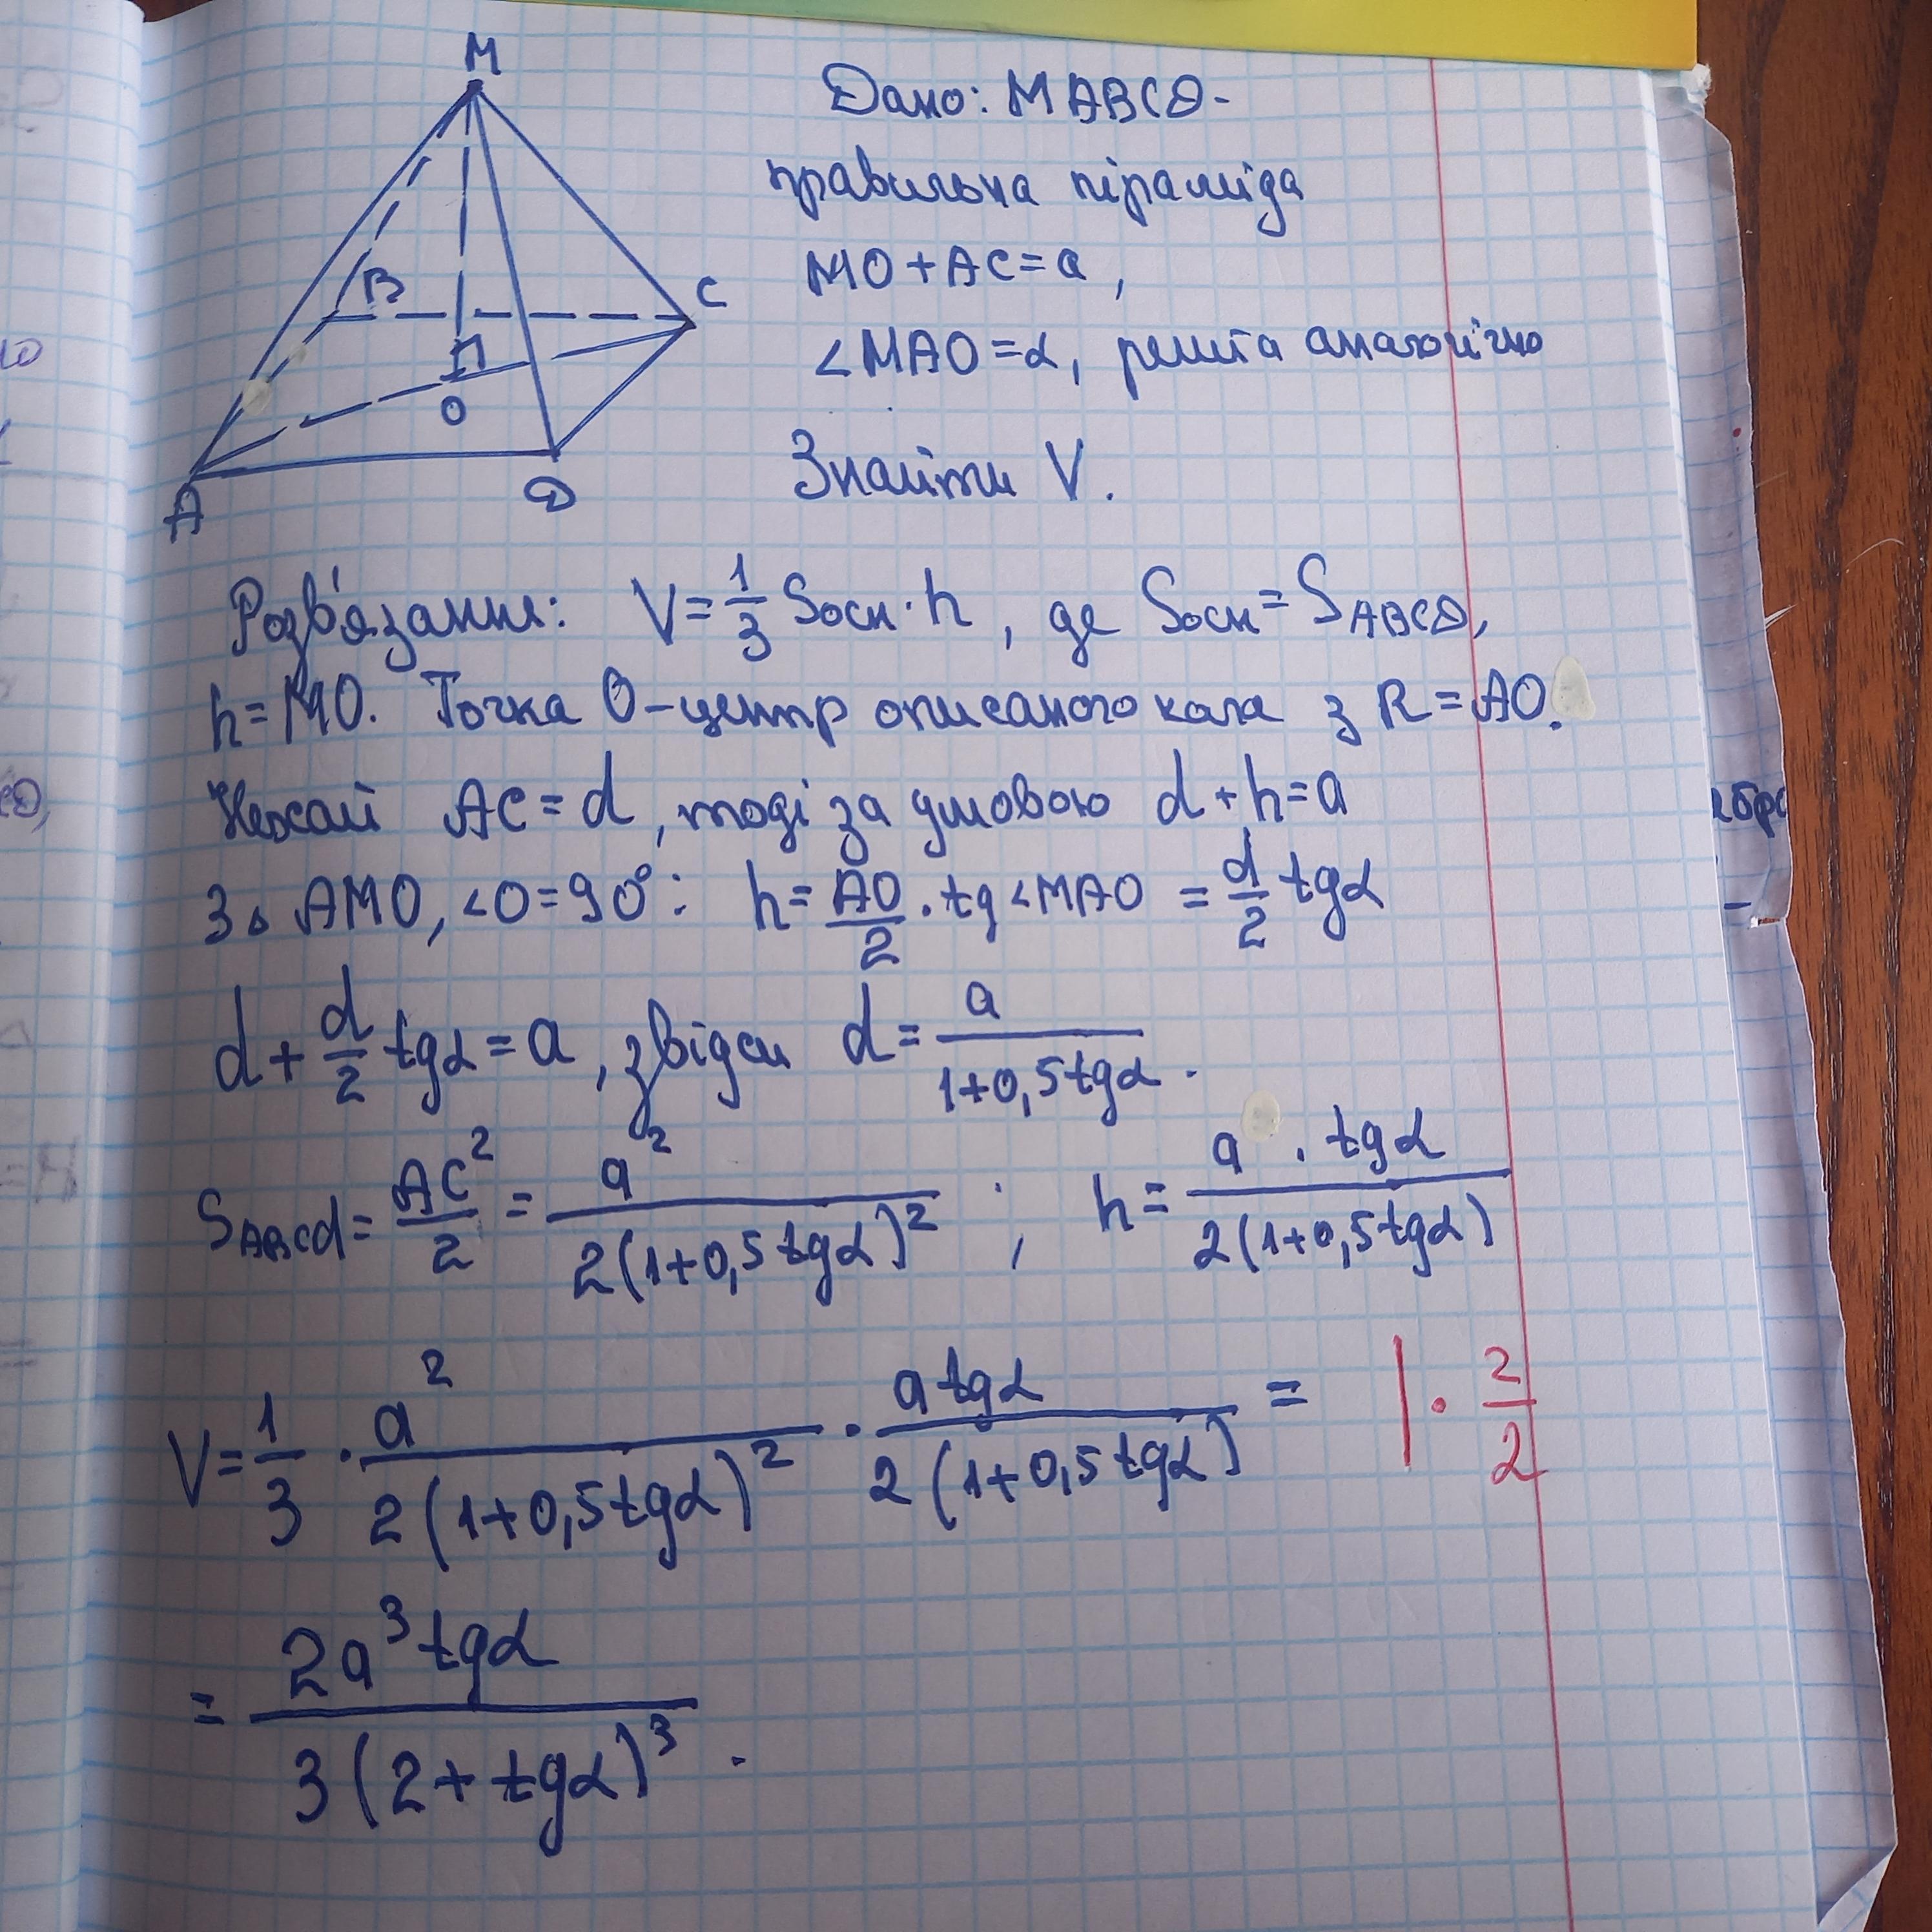 M
Дано: MABCD-
правильна піраміда
MO+AC=a,
∠MAO=α, решта аналогічно
B
C
O
A
D
Знайти V.
Розв'язання: V=1/3 Sосн·h, де Sосн=SABCD,
h=MO. Точка O-центр описаного кола з R=AO.
Нехай AC=d, тоді за умовою d+h=a
З △ AMO, ∠O=90°: h=AO/2·tg∠MAO=d/2 tgα
d+d/2 tgα=a, звідси d=a/(1+0,5tgα).
SABCd=AC²/2=a²/(2(1+0,5tgα)²); h=(a·tgα)/(2(1+0,5tgα))
V=1/3·a²/(2(1+0,5tgα)²)·(atgα)/(2(1+0,5tgα))= |·2/2
=(2a³tgα)/(3(2+tgα)³).